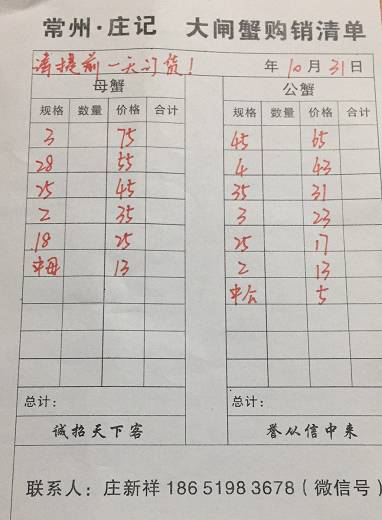 常州·庄记 大闸蟹购销清单
请提前一天订货! 年10月31日
母蟹 公蟹
规格 数量 价格 合计 规格 数量 价格 合计
3 75 45 65
28 55 4 43
25 45 35 31
2 35 3 23
18 25 25 17
中母 13 2 13
中公 5
总计: 总计:
诚招天下客 誉从信中来
联系人:庄新祥 18651983678(微信号)